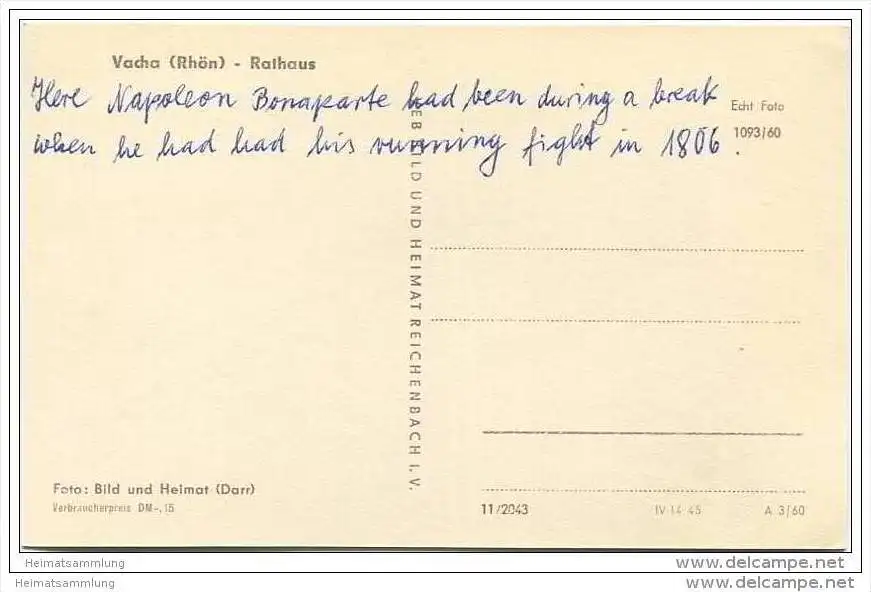 Vacha (Rhön) - Rathaus
Here Napoleon Bonaparte had been during a break
when he had had his running fight in 1806.
Echt Foto
1093/60
EB BILD UND HEIMAT REICHENBACH I. V.
Foto: Bild und Heimat (Darr)
Verbraucherpreis DM -,15
11/2043
IV-14-45
A 3/60
Heimatsammlung
www.delcampe.net
Heimatsammlung
www.delcampe.net